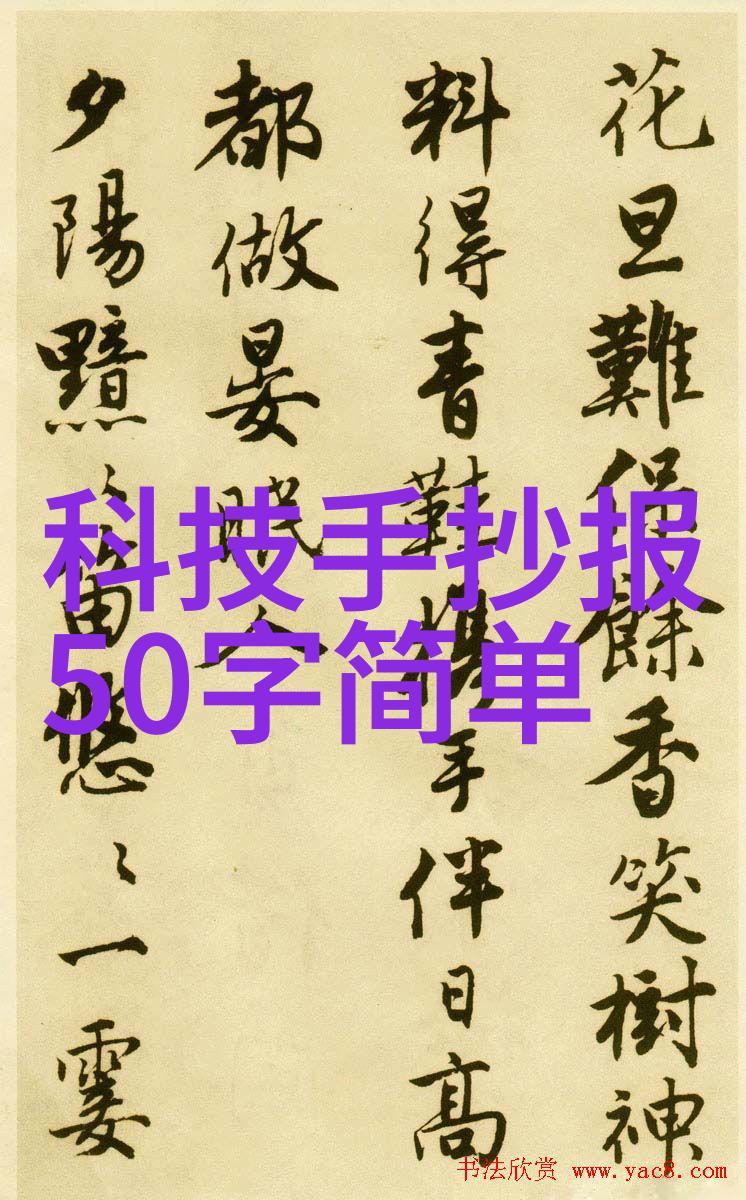 花旦難保餘香笑樹神
料得青鞋携手伴日高
都做晏眠人
夕陽黯〻笛悠〻一霎
科技手抄报
50字简单
书法欣赏 www.yac8.com